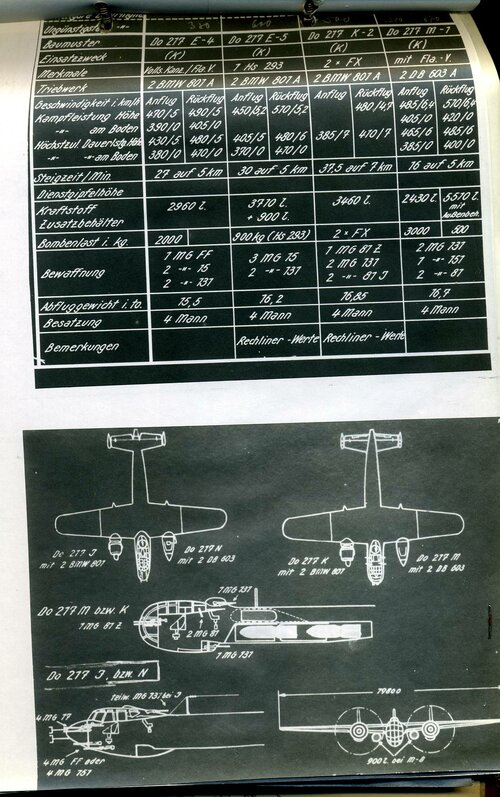 Ungünstigste -"-
Baumuster Do 217 E-4 Do 217 E-5 Do 217 K-2 Do 217 M-1
Einsatzzweck (K) (K) (K) (K)
Merkmale Volls. Kanz./Fla.V. 1 Hs 293 2 × FX mit Fla.-V.
Triebwerk 2 BMW 801 A 2 BMW 801 A 2 BMW 801 A 2 DB 603 A
Geschwindigkeit i. km/h Anflug Rückflug Anflug Rückflug Anflug Rückflug Anflug Rückflug
Kampfleistung Höhe 470/5 490/5 450/5,2 570/5,2 480/4,7 485/6,4 570/6,4
-"- am Boden 390/0 405/0 405/0 420/0
Höchstzul. Dauerlstg. Höh. 430/5 480/5 405/5 480/6 385/7 470/7 465/6 485/6
-"- -"- am Boden 380/0 470/0 370/0 470/0 385/0 400/0
Steigzeit/Min. 27 auf 5 km 30 auf 5 km 37,5 auf 7 km 16 auf 5 km
Dienstgipfelhöhe
Kraftstoff 2960 l. 3710 l. 3460 l. 2430 l. 5570 l.
Zusatzbehälter + 900 l. mit Außenbeh.
Bombenlast i. kg. 2000 900 kg (Hs 293) 2 × FX 3000 500
1 MG FF 3 MG 15 1 MG 81 Z 2 MG 131
Bewaffnung 2 -"- 15 2 -"- 131 2 MG 131 1 -"- 151
2 -"- 131 2 -"- 81 J 2 -"- 81
Abfluggewicht i. to. 15,5 16,2 16,85 16,7
Besatzung 4 Mann 4 Mann 4 Mann 4 Mann
Bemerkungen Rechliner-Werte Rechliner-Werte
Do 217 J
mit 2 BMW 801
Do 217 N
mit 2 DB 603
Do 217 K
mit 2 BMW 801
Do 217 M
mit 2 DB 603
Do 217 M bzw. K
1 MG 131
1 MG 81 Z
2 MG 81
1 MG 131
Do 217 J. bzw. N
teilw. MG 131 bei J
4 MG 17
4 MG FF oder
4 MG 151
19800
900 l. bei M-8